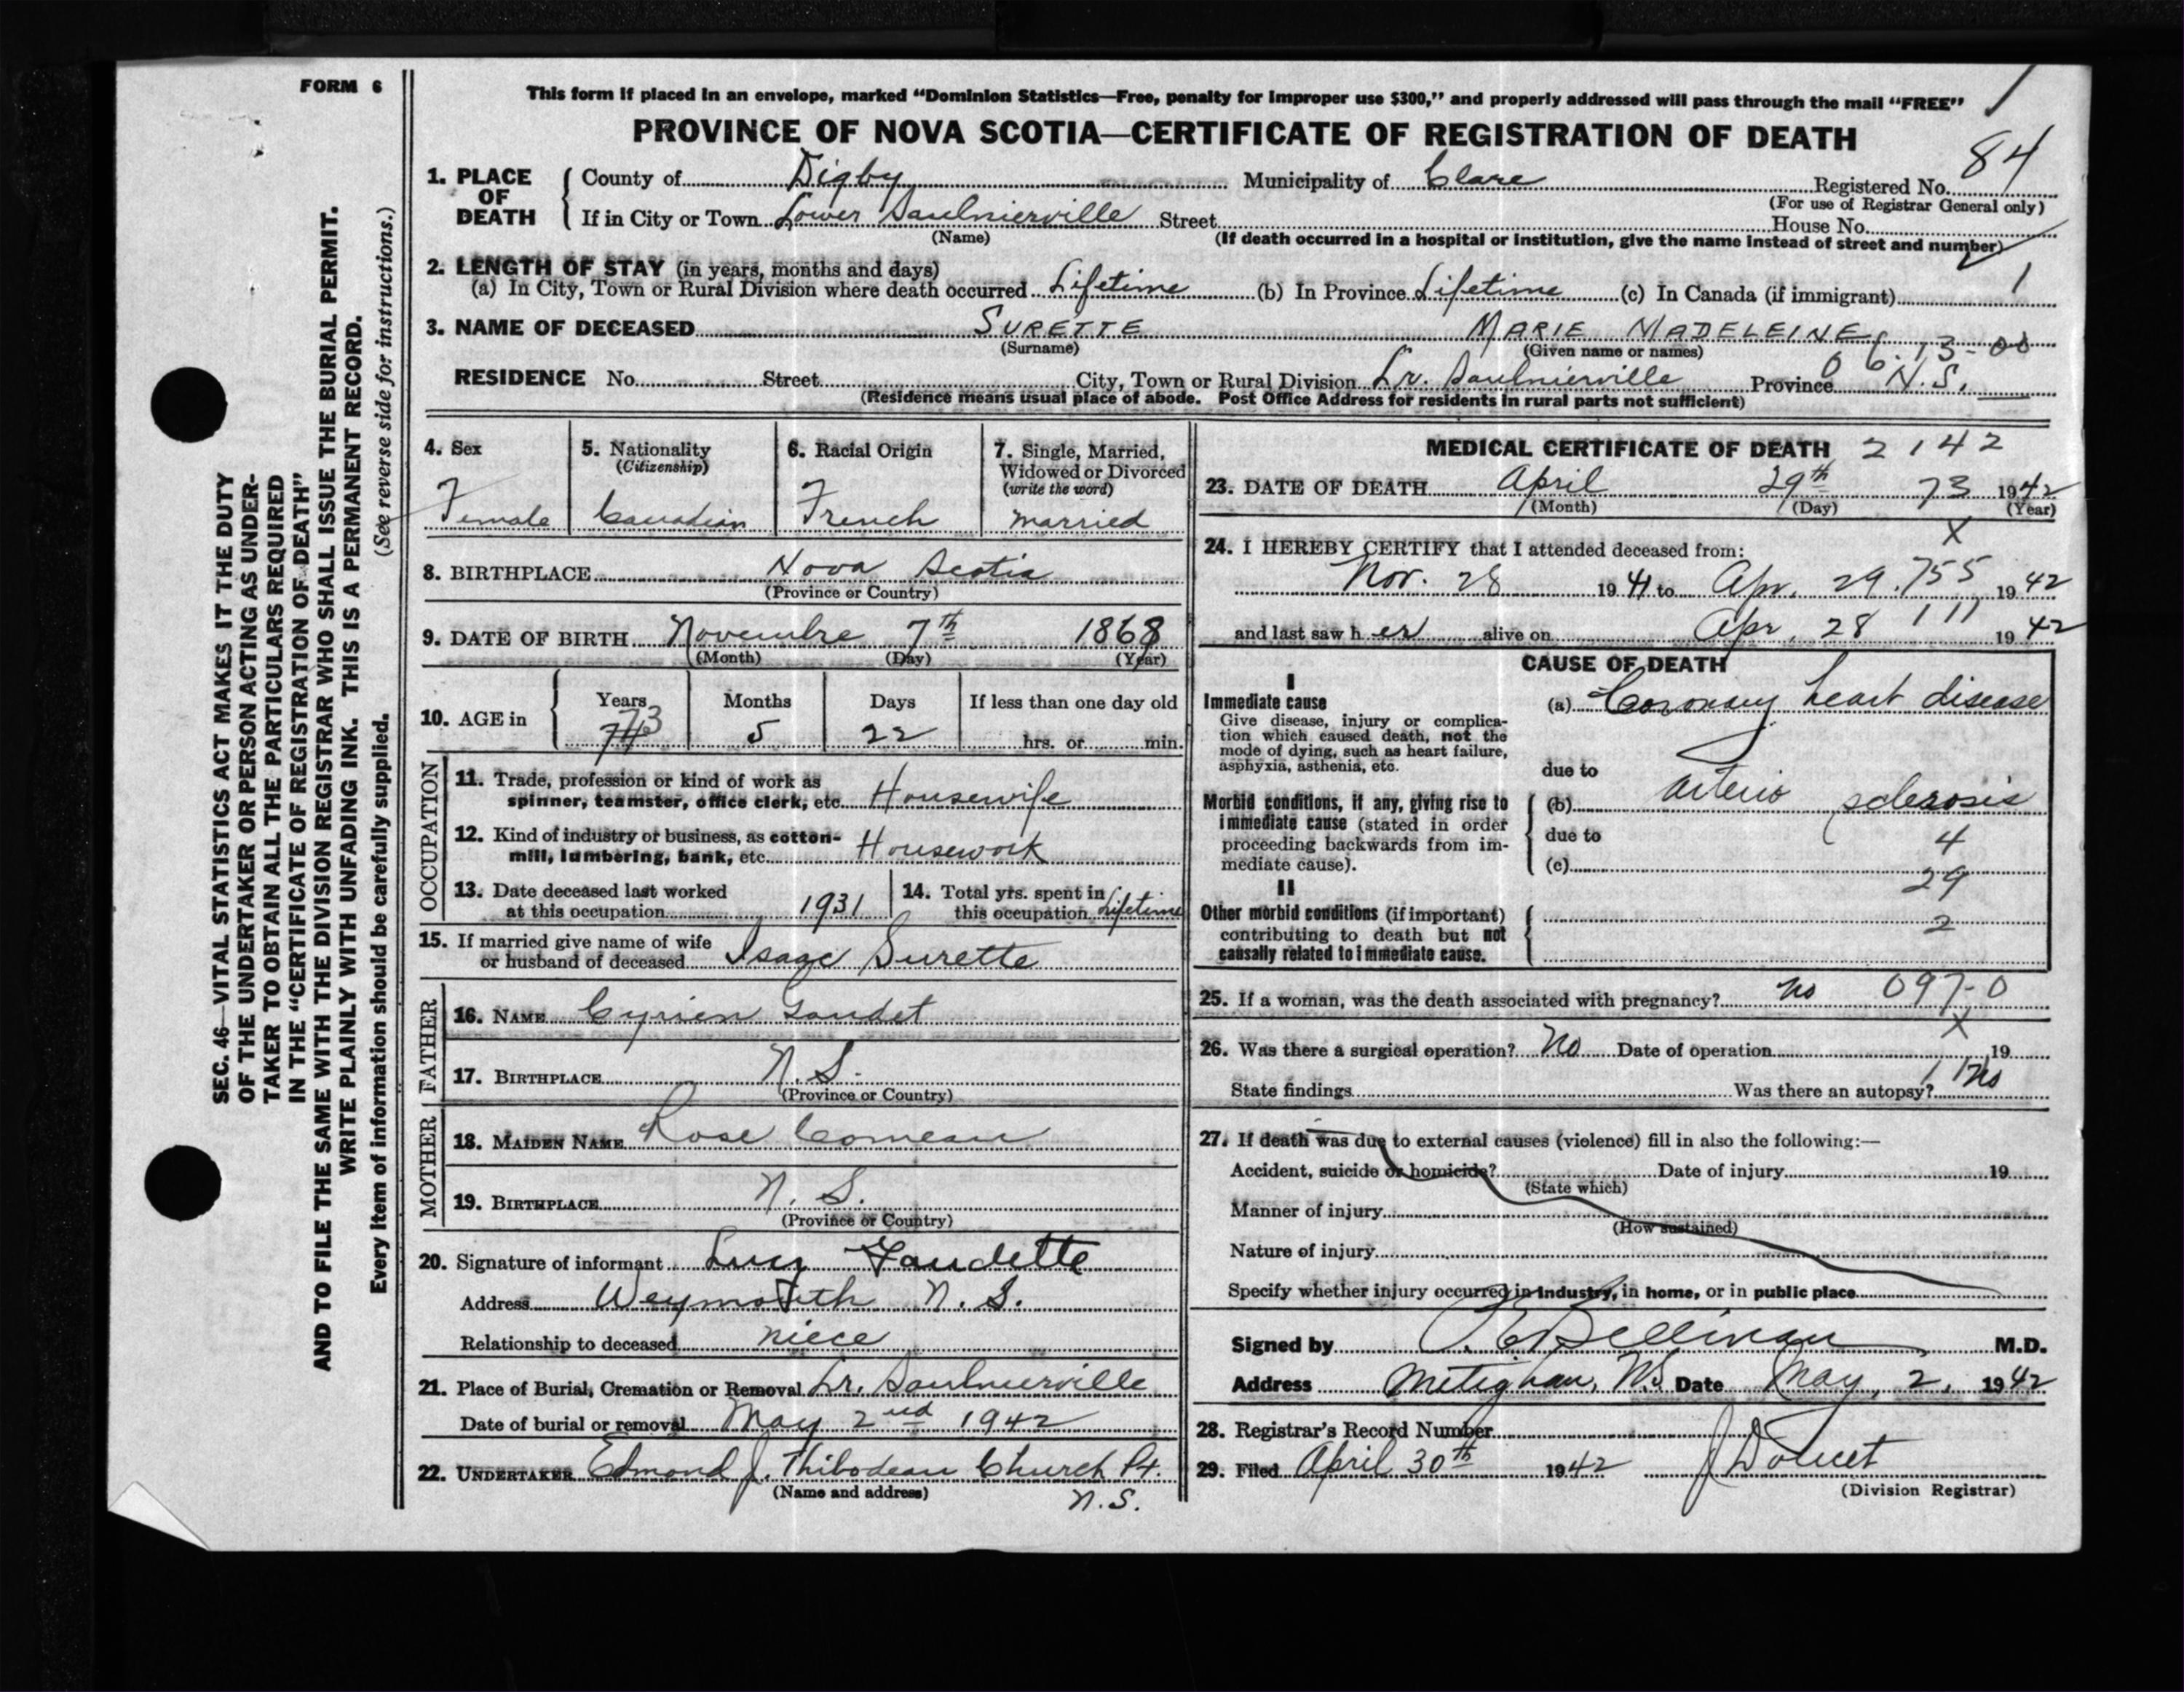 FORM 6
This form if placed in an envelope, marked “Dominion Statistics—Free, penalty for improper use $300,” and properly addressed will pass through the mail “FREE”
PROVINCE OF NOVA SCOTIA—CERTIFICATE OF REGISTRATION OF DEATH
84
1. PLACE OF DEATH { County of Digby Municipality of Clare Registered No.
(For use of Registrar General only)
If in City or Town Lower Saulnierville Street House No.
(Name) (If death occurred in a hospital or institution, give the name instead of street and number)
2. LENGTH OF STAY (in years, months and days)
(a) In City, Town or Rural Division where death occurred Lifetime (b) In Province Lifetime (c) In Canada (if immigrant) 1
3. NAME OF DECEASED SURETTE MARIE MADELEINE
(Surname) (Given name or names) 06.13-00
RESIDENCE No. Street City, Town or Rural Division Lr. Saulnierville Province N.S.
(Residence means usual place of abode. Post Office Address for residents in rural parts not sufficient)
4. Sex 5. Nationality (Citizenship) 6. Racial Origin 7. Single, Married, Widowed or Divorced (write the word)
Female Canadian French married
8. BIRTHPLACE Nova Scotia
(Province or Country)
9. DATE OF BIRTH Novembre 7th 1868
(Month) (Day) (Year)
10. AGE in { Years Months Days If less than one day old
73 5 22 hrs. or min.
OCCUPATION
11. Trade, profession or kind of work as
spinner, teamster, office clerk, etc. Housewife
12. Kind of industry or business, as cotton-
mill, lumbering, bank, etc. Housework
13. Date deceased last worked at this occupation 1931 14. Total yrs. spent in this occupation Lifetime
15. If married give name of wife
or husband of deceased Isaac Surette
FATHER
16. NAME Cyrien Gaudet
17. BIRTHPLACE N.S.
(Province or Country)
MOTHER
18. MAIDEN NAME Rose Comeau
19. BIRTHPLACE N. S.
(Province or Country)
20. Signature of informant Lucy Gaudette
Address Weymouth N. S.
Relationship to deceased niece
21. Place of Burial, Cremation or Removal Lr. Saulnierville
Date of burial or removal May 2nd 1942
22. UNDERTAKER Edmond J. Thibodeau Church Pt.
(Name and address) N.S.
MEDICAL CERTIFICATE OF DEATH 2142
23. DATE OF DEATH April 29th 73 1942
(Month) (Day) (Year)
X
24. I HEREBY CERTIFY that I attended deceased from:
Nov. 28 1941 to Apr. 29. 755 1942
and last saw h er alive on Apr. 28 111 1942
CAUSE OF DEATH
I
Immediate cause (a) Coronary heart disease
Give disease, injury or complica-
tion which caused death, not the
mode of dying, such as heart failure,
asphyxia, asthenia, etc.
due to
Morbid conditions, if any, giving rise to (b) Arterio sclerosis
immediate cause (stated in order
proceeding backwards from im-
mediate cause).
due to 4
(c) 29
II
Other morbid conditions (if important) 2
contributing to death but not
causally related to immediate cause.
25. If a woman, was the death associated with pregnancy? no 097-0
X
26. Was there a surgical operation? No Date of operation 19
State findings Was there an autopsy? 11 no
27. If death was due to external causes (violence) fill in also the following:—
Accident, suicide or homicide? Date of injury 19
(State which)
Manner of injury
(How sustained)
Nature of injury
Specify whether injury occurred in industry, in home, or in public place
Signed by Belliveau M.D.
Address Meteghan, N.S Date May, 2, 1942
28. Registrar's Record Number
29. Filed April 30th 1942 J Doucet
(Division Registrar)
SEC. 46—VITAL STATISTICS ACT MAKES IT THE DUTY
OF THE UNDERTAKER OR PERSON ACTING AS UNDER-
TAKER TO OBTAIN ALL THE PARTICULARS REQUIRED
IN THE “CERTIFICATE OF REGISTRATION OF DEATH”
AND TO FILE THE SAME WITH THE DIVISION REGISTRAR WHO SHALL ISSUE THE BURIAL PERMIT.
WRITE PLAINLY WITH UNFADING INK. THIS IS A PERMANENT RECORD.
Every item of information should be carefully supplied. (See reverse side for instructions.)